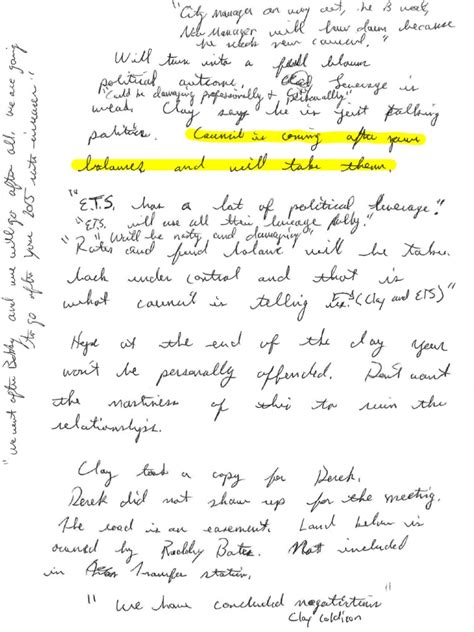 "City manager on way out, he is weak,
New Manager will bow down because
he needs new council."
Will turn into a full blown
political outcome. Leverage is
"Could be damaging professionally & personally"
weak. Clay says he is just talking
politics. Council is coming after your
balances and will take them.
"E.T.S. has a lot of political leverage."
"ETS. will use all their leverage fully."
"Will be nasty and damaging"
"Rates and fund balance will be taken
back under control and that is
what council is telling us." (Clay and ETS)"
Hope at the end of the day your
won't be personally offended. Don't want
the nastiness of this to ruin the
relationships.
Clay took a copy for Derek.
Derek did not show up for the meeting.
The road is an easement. Land below is
owned by Bates. Not included
in Transfer station.
"We have concluded negotiations"
Clay
"We went after Bobby and we will go after all, we are going
to go after your 2015 rate increase."